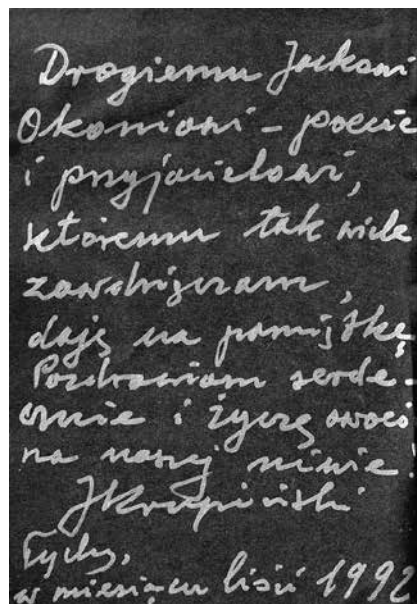 Drogiemu Jackowi
Okoniowi – poecie
i przyjacielowi,
któremu tak wiele
zawdzięczam,
daję na pamiątkę
Pozdrawiam serde-
cznie i życzę owoców
na naszej niwie!
JKrupiński
Tychy,
w miesiącu liści 1992